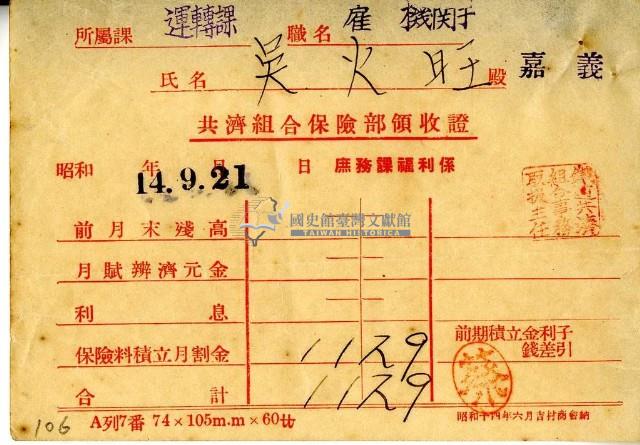 所屬課 運轉課 職名 雇 機関子
氏名 吳火旺 殿 嘉義
共濟組合保險部領收證
昭和 年 月 日 庶務課福利係
14.9.21
組合事務
取扱主任
前月末殘高
國史館臺灣文獻館
TAIWAN HISTORICA
月賦辨濟元金
利息
保險料積立月割金 1129
前期積立金利子
錢差引
合計 1129
106
A列7番 74×105m.m×60廿
昭和十四年六月吉村商會納